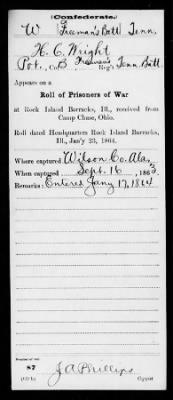 (Confederate.)
W Freeman's Batt Tenn.
H. C. Wright
Pvt., Co. B Freeman's Reg't Tenn. Batt
Appears on a
Roll of Prisoners of War
at Rock Island Barracks, Ill., received from
Camp Chase, Ohio.
Roll dated Headquarters Rock Island Barracks,
Ill., Jan'y 23, 1864.
Where captured Wilson Co. Ala,
When captured Sept. 16, 1863.
Remarks: Entered Jany 17, 1864
Number of roll:
87
J A Phillips
Copyist.